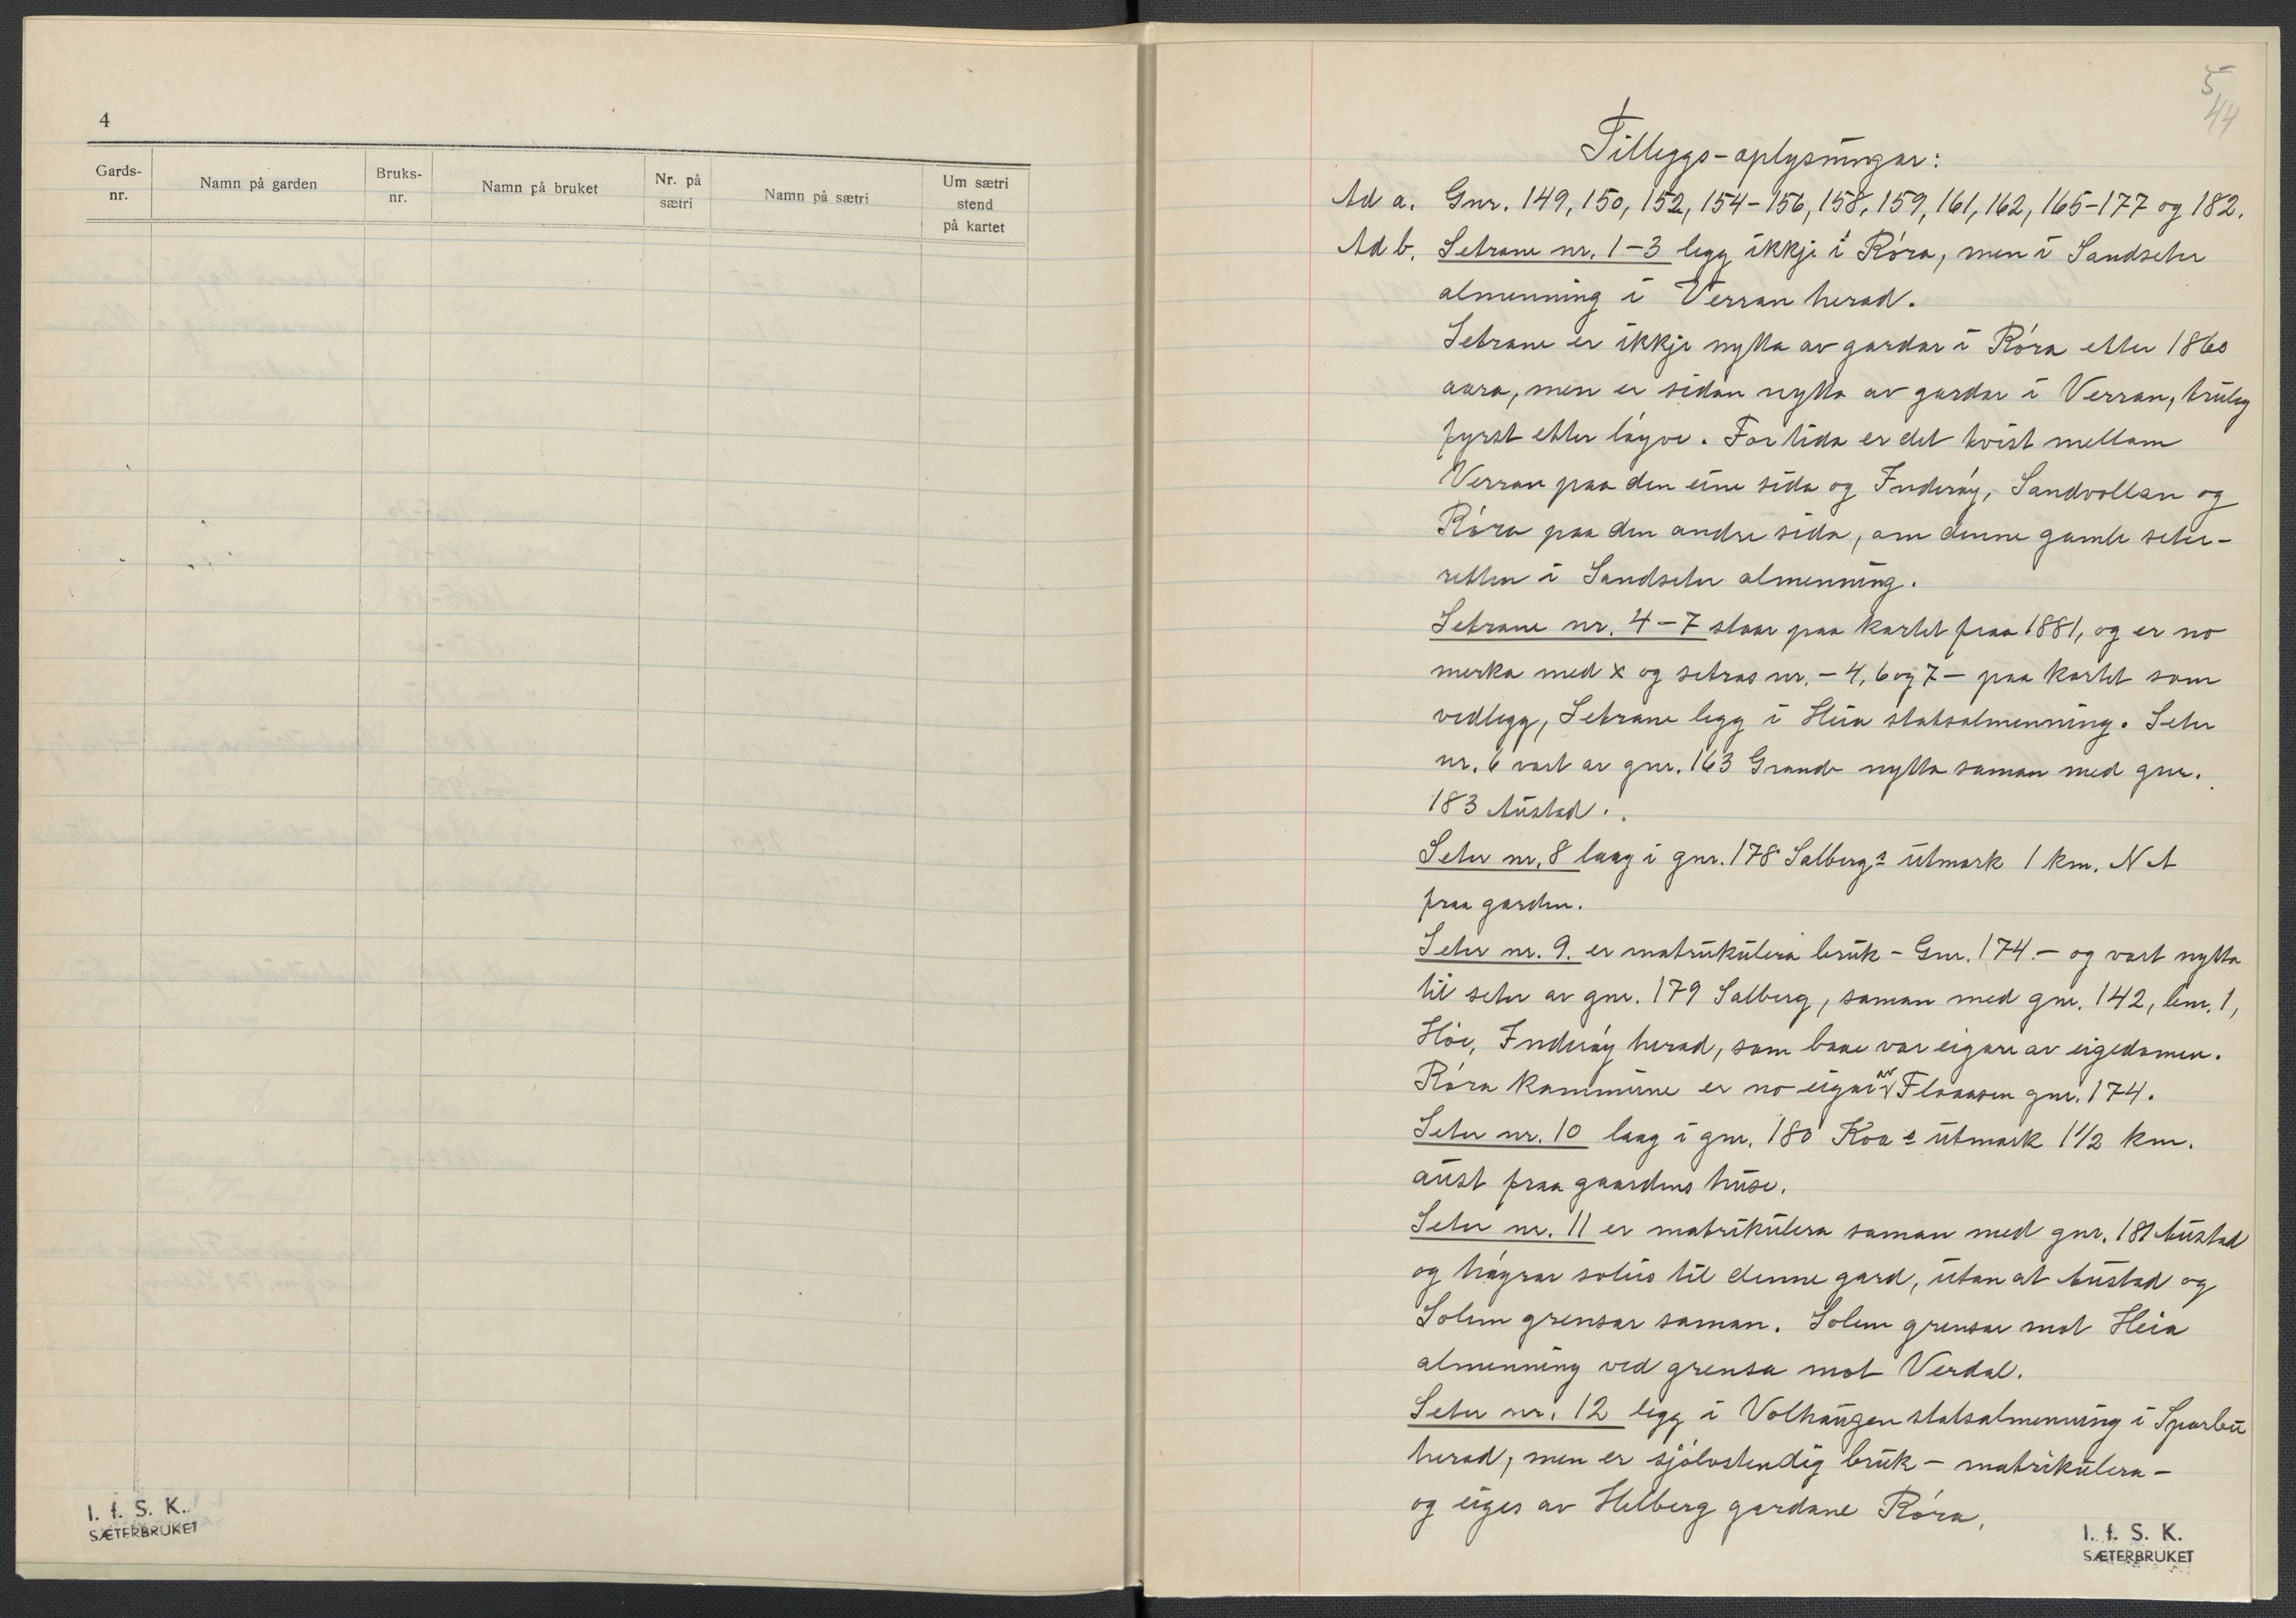 4
Gards-
nr.
Namn på garden
Bruks-
nr.
Namn på bruket
Nr. på
sætri
Namn på sætri
Um sætri
stend
på kartet
I. f. S. K.
SÆTERBRUKET
5
44
Tilleggs-oplysningar:
Ad a. Gnr. 149, 150, 152, 154-156, 158, 159, 161, 162, 165-177 og 182.
Ad b. Setrane nr. 1-3 legg ikkje i Róra, men i Sandseter
almenning i Verran herad.
Setrane er ikkje nytta av gardar i Róra etter 1860
aara, men er sidan nytta av gardar i Verran, truleg
fyrst etter lóyve. For tida er det tvist mellom
Verran paa den eine sida og Inderóy, Sandvollan og
Róra paa den andre sida, om denne gamle seter-
retten i Sandseter almenning.
Setrane nr. 4-7 staar paa kartet fraa 1881, og er no
merka med x og setras nr. - 4, 6 og 7 - paa kartet som
vedlegg, Setrane legg i Heia statsalmenning. Seter
nr. 6 vart av gnr. 163 Grande nytta saman med gnr.
183 Austad.
Seter nr. 8 laag i gnr. 178 Salbergs utmark 1 km. NA
fraa garden.
Seter nr. 9. er matrukulera bruk - Gnr. 174. - og vart nytta
til seter av gnr. 179 Salberg, saman med gnr. 142, bnr. 1,
Hóe, Inderóy herad, som baae var eigare av eigedomen.
Róra kommune er no eigar av Flaaasen gnr. 174.
Seter nr. 10 laag i gnr. 180 Koa s utmark 1 1/2 km.
aust fraa gaardens huse.
Seter nr. 11 er matrikulera saman med gnr. 181 Austad
og hóyrar soleis til denne gard, utan at Austad og
Solem grensar saman. Solem grensar mot Heia
almenning ved grensa mot Verdal.
Seter nr. 12 legg i Volhaugen statsalmenning i Sparbu
herad, men er sjólvstendig bruk - matrikulera -
og eiges av Helberg gardane Róra.
I. f. S. K.
SÆTERBRUKET